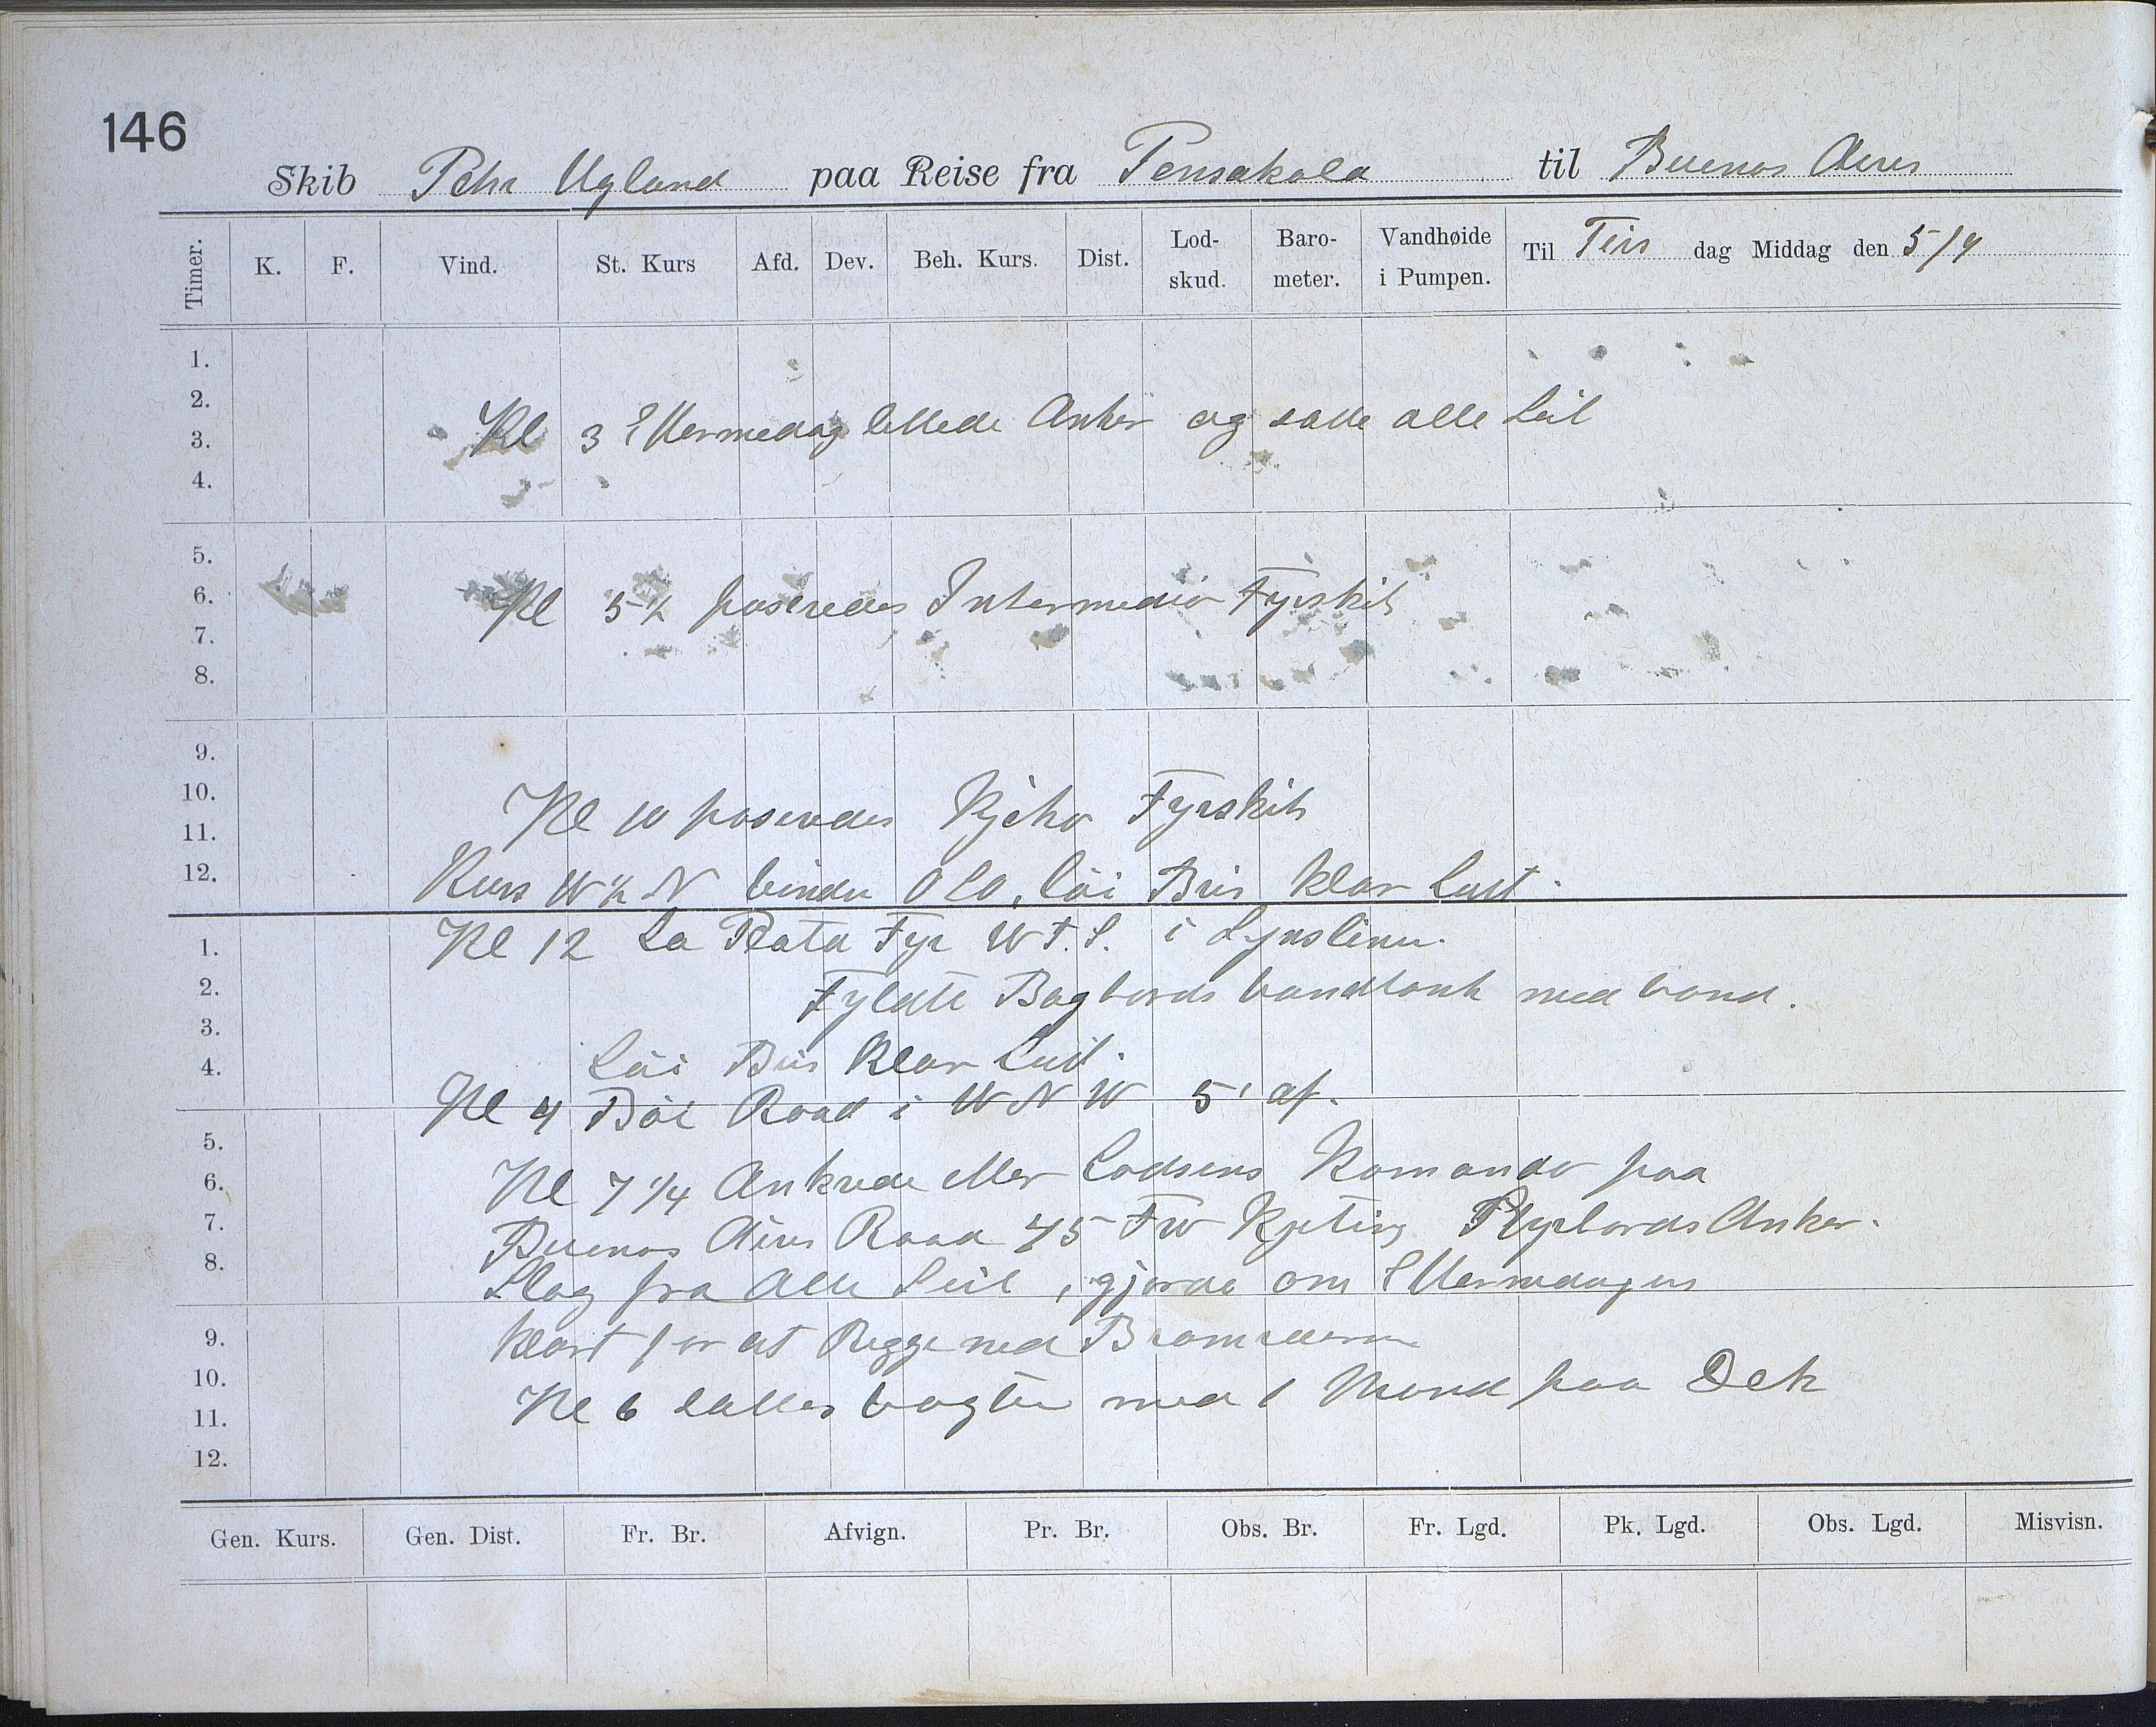 146
Skib Pehr Ugland paa Reise fra Pensakola til Buenos Aires
Timer. K. F. Vind. St. Kurs Afd. Dev. Beh. Kurs. Dist. Lod-skud. Baro-meter. Vandhøide i Pumpen. Til Tirs dag Middag den 5/9
1.
2.
3. Kl 3 Ettermedag lettede Anker og satte alle Seil
4.
5.
6. Kl 5½ paseredes Intermedio Fyrskib
7.
8.
9.
10.
11. Kl 10 paseredes Fyrskib
12. Kurs W½N vinden OLO, löi Bris klar Luft.
1. Kl 12 La Plata Fyr W.t.S. i Synslinien.
2. Fyldte Bagbords vandtank med vand.
3.
4. Löi Bris klar Luft.
Kl 4 Röi Road i WNW 5' af.
5.
6. Kl 7¼ Ankrede etter Lodsens Komando paa
7. Buenos Aires Road 45 Fv Kjeting Styrbords Anker.
8. Slog fra Alle Seil, gjorde om Ettermedagen
9. klart for at Rigge ned
10. Kl 6 sattes vagten med 1 Mand paa Dek
11.
12.
Gen. Kurs. Gen. Dist. Fr. Br. Afvign. Pr. Br. Obs. Br. Fr. Lgd. Pk. Lgd. Obs. Lgd. Misvisn.